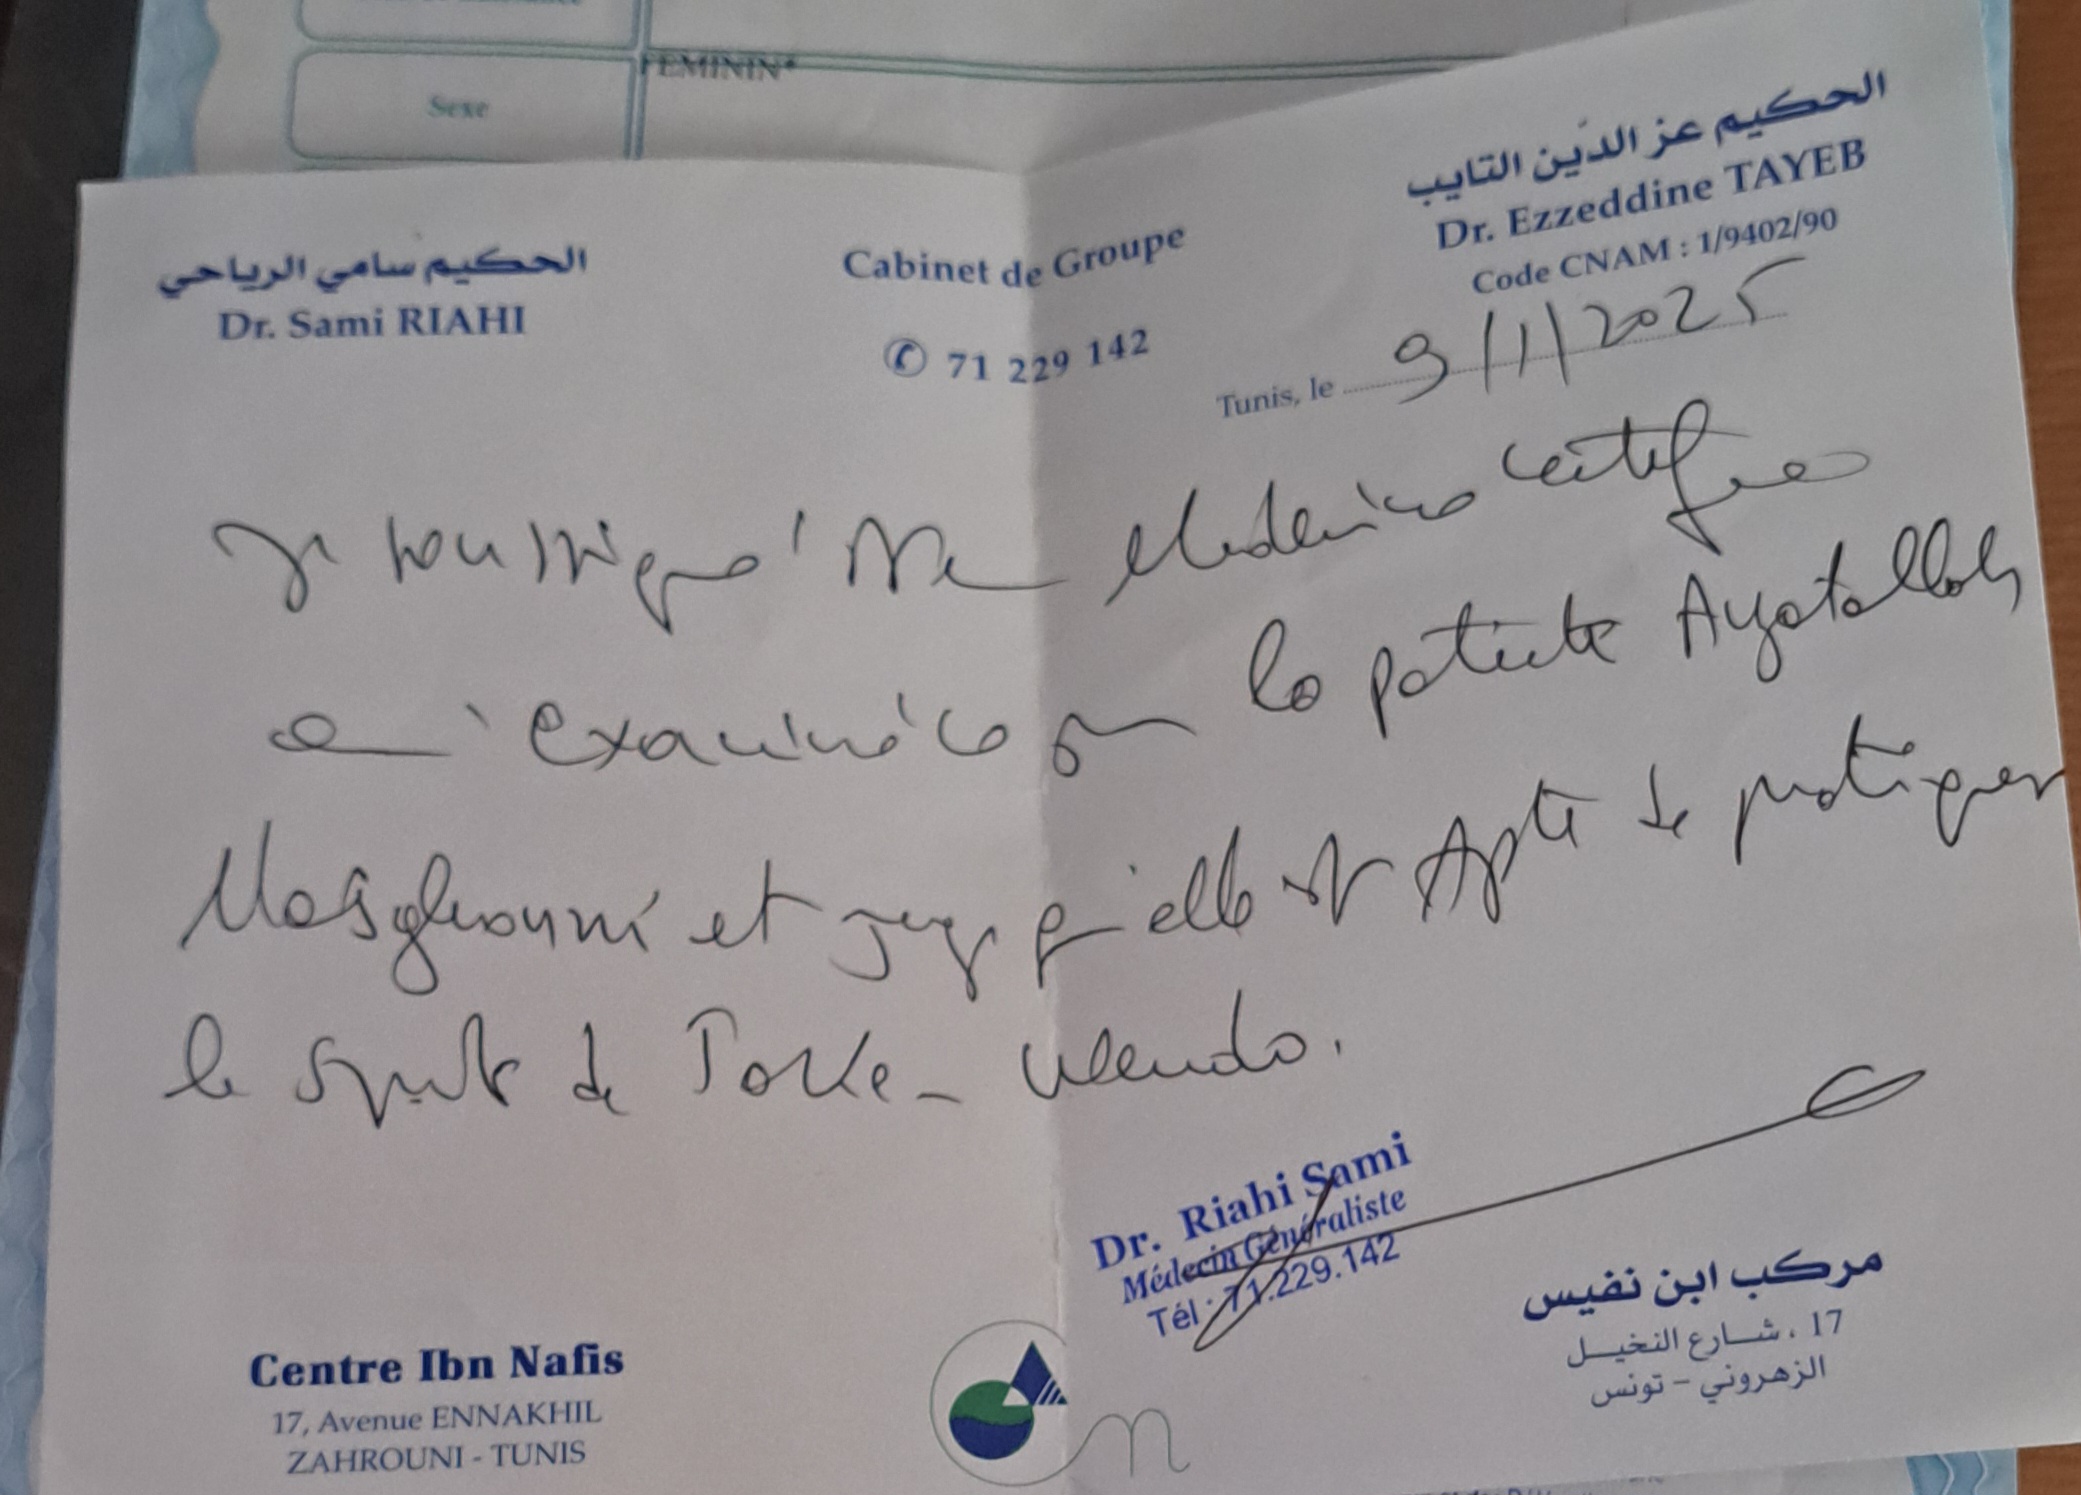 FEMININ*
Sexe
الحكيم عز الدّين التايب
Dr. Ezzeddine TAYEB
Code CNAM : 1/9402/90
الحكيم سامي الرياحي
Dr. Sami RIAHI
Cabinet de Groupe
✆ 71 229 142
Tunis, le 9/1/2025
Je soussigné Medecin certifie
examiné la patiente Ayatallah
Masghouni et juge qu'elle est Apte de pratiquer
le sport de Takie-Wendo.
Dr. Riahi Sami
Médecin Généraliste
Tél : 71.229.142
Centre Ibn Nafis
17, Avenue ENNAKHIL
ZAHROUNI - TUNIS
مركب ابن نفيس
17 ، شارع النخيل
الزهروني - تونس